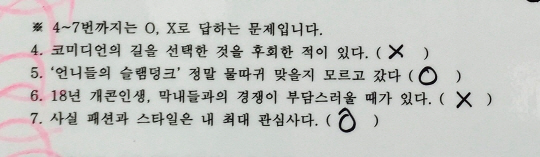 ※ 4~7번까지는 O, X로 답하는 문제입니다.
4. 코미디언의 길을 선택한 것을 후회한 적이 있다. ( X )
5. '언니들의 슬램덩크' 정말 물따귀 맞을지 모르고 갔다 ( O )
6. 18년 개콘인생, 막내들과의 경쟁이 부담스러울 때가 있다. ( X )
7. 사실 패션과 스타일은 내 최대 관심사다. ( O )